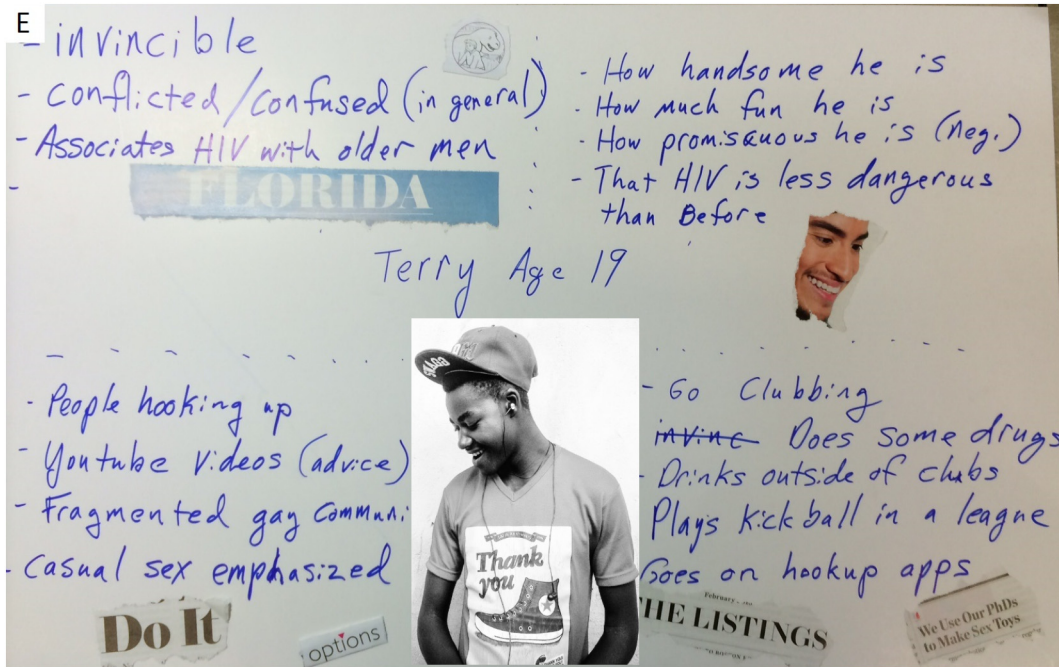 E
- invincible
- conflicted/confused (in general)
- Associates HIV with older men
-
FLORIDA
- How handsome he is
- How much fun he is
- How promiscuous he is (neg.)
- That HIV is less dangerous
than Before
Terry Age 19
- People hooking up
- Youtube videos (advice)
- Fragmented gay communi
- casual sex emphasized
Do It
options
Thank
you
- Go Clubbing
invinc Does some drugs
- Drinks outside of clubs
Plays kickball in a league
Goes on hookup apps
February
THE LISTINGS
We Use Our PhDs
to Make Sex Toys